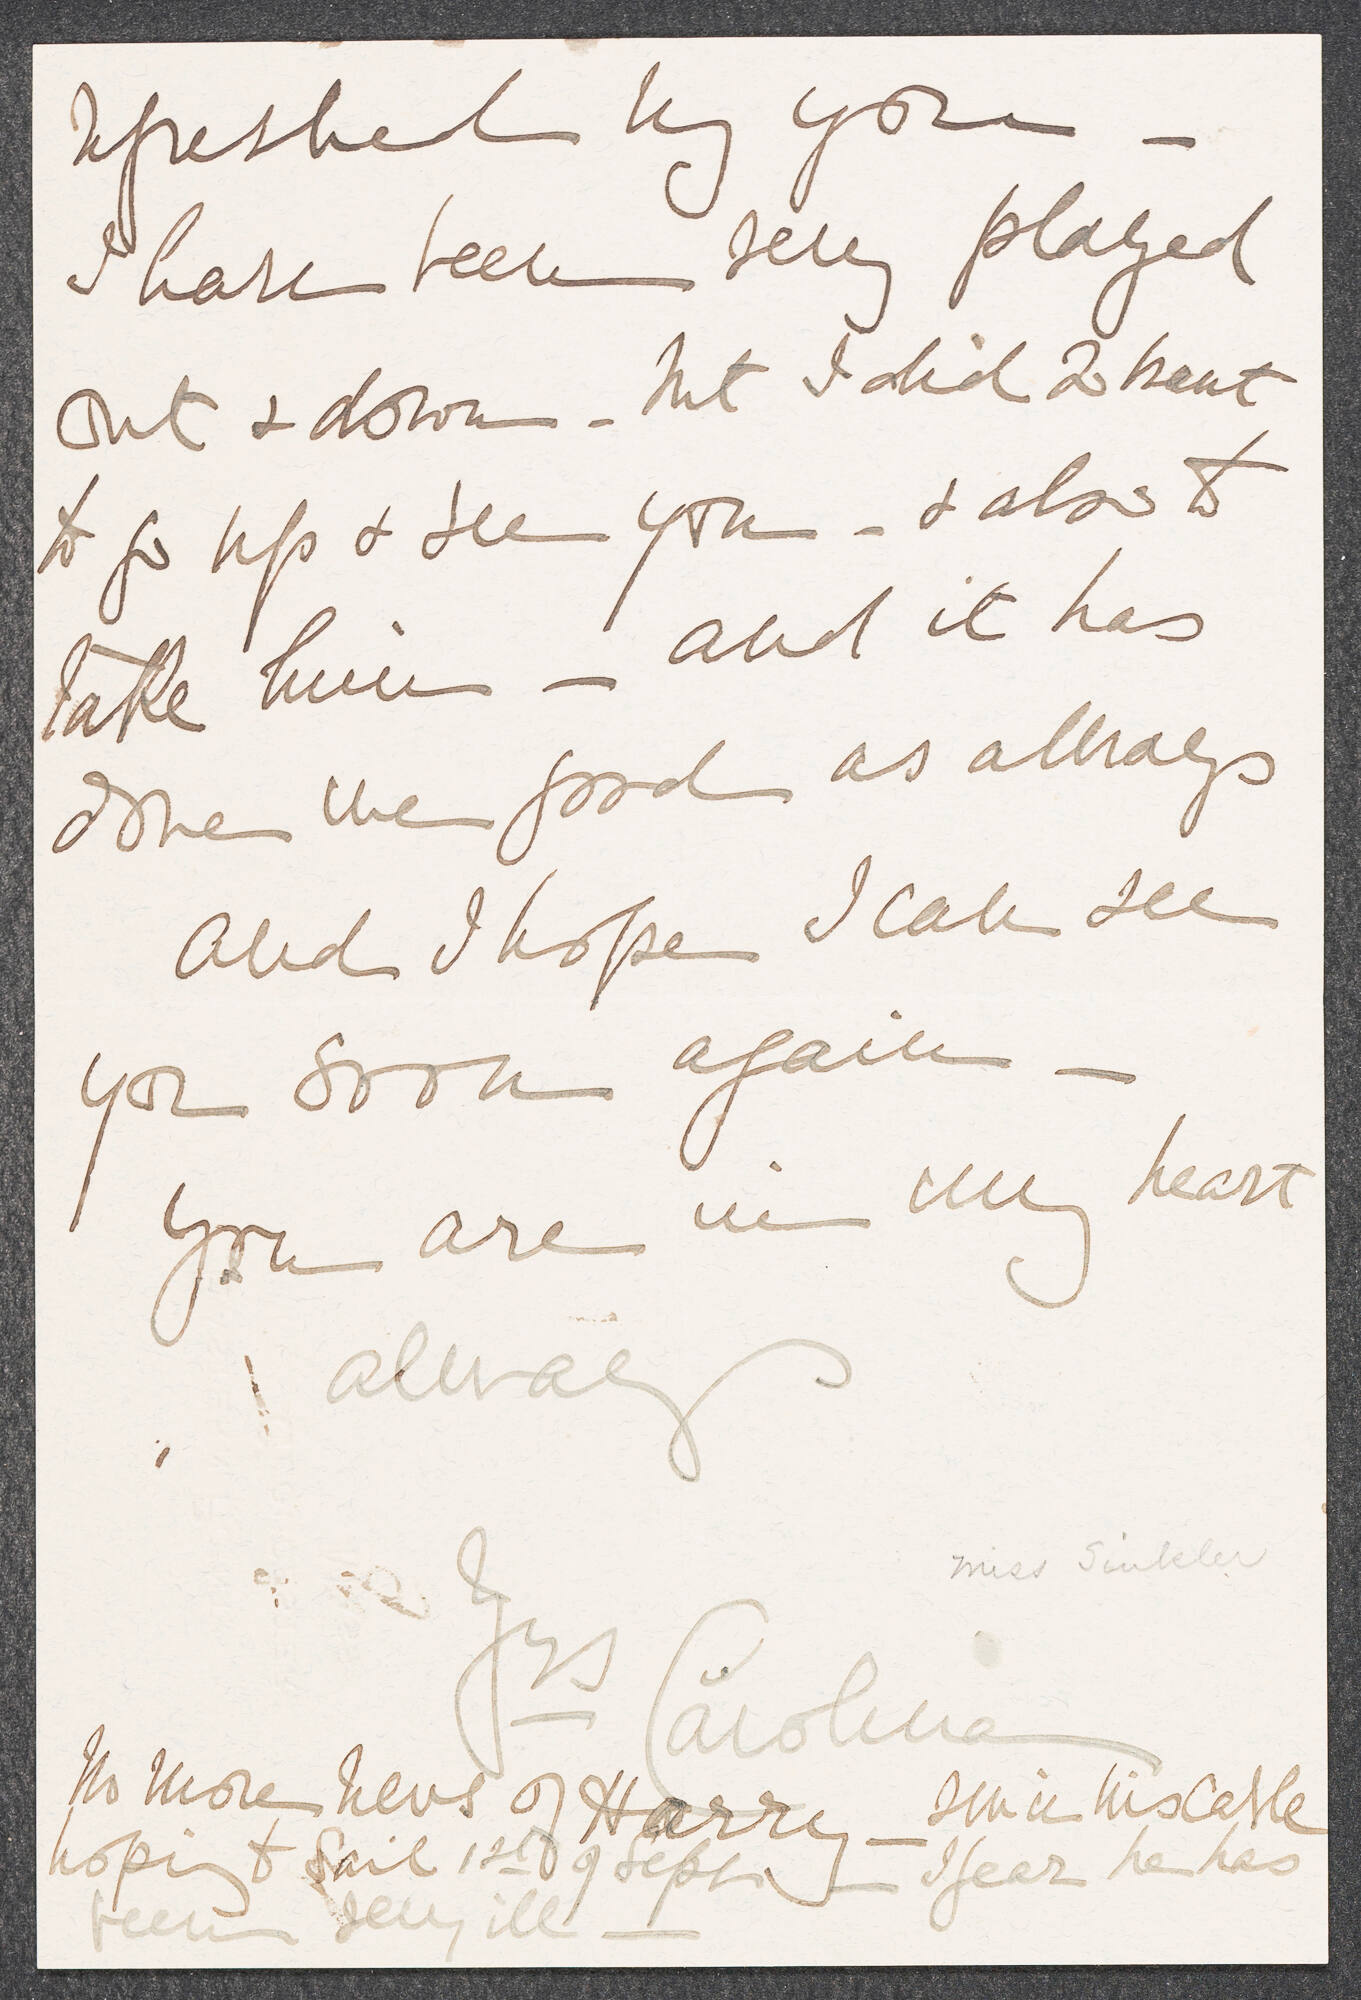 refreshed by you —
I have been very played
out & down - but I did so want
to go up & see you - & also to
take him — and it has
done me good as always
and I hope I can see
you soon again —
you are in my heart
always
Miss Sinkler
Yrs Carolina
No more news of Harry — since his cable
hoping to sail 1st of Sept. — I fear he has
been very ill —